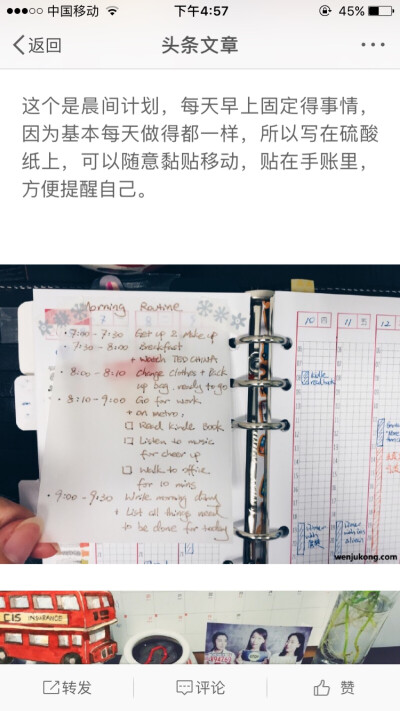 中国移动
下午4:57
45%
返回
头条文章
这个是晨间计划，每天早上固定得事情，
因为基本每天做得都一样，所以写在硫酸
纸上，可以随意黏贴移动，贴在手账里，
方便提醒自己。
Morning Routine
7:00-7:30 Get up & Make up
7:30-8:00 Breakfast
+ Watch TED CHUWA
8:00-8:10 change clothes + Pack
up bag. ready to go
8:10-9:00 Go for work
+ on metro,
Read kindle Book
Listen to music
for cheer up
Walk to office
for 10 mins
9:00-9:30 Write morning diary
+ List all things need
to be done for today
10
11
12
wenjukong.com
CIS INSURANCE
转发
评论
赞